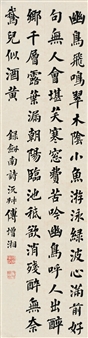 幽鳥飛鳴翠木陰小魚游泳綠波心滿前好
句無人會堪笑寒窗費苦吟幽鳥呼人出醉
鄉千層露葉漏朝陽臨池祗欲消殘醉無奈
鵞兒似酒黃
錄劍南詩 沅叔傅增湘